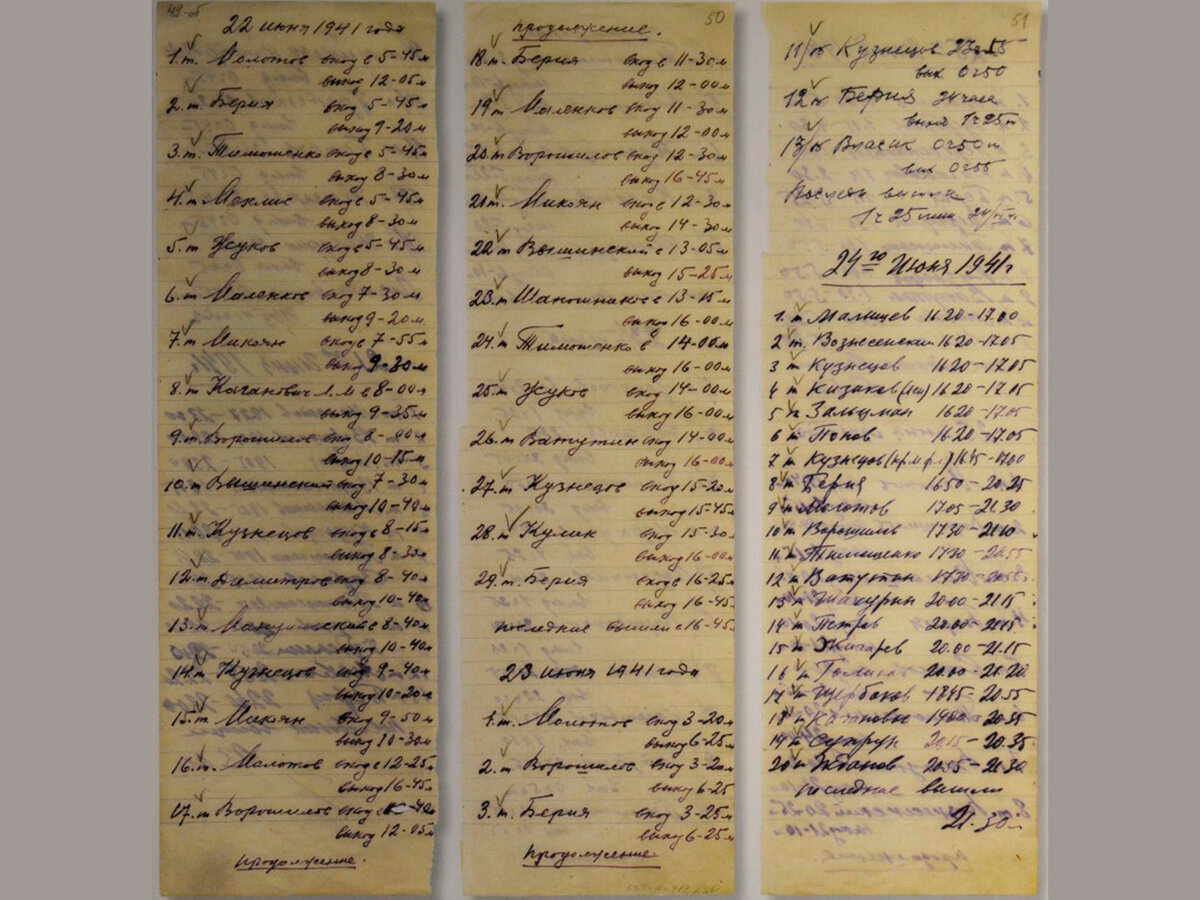 49-об
22 июня 1941 года
1. т. Молотов вход в 5-45м
выход 12-05м
2. т. Берия вход 5-45м
выход 9-20м
3. т. Тимошенко вход в 5-45м
выход 8-30м
4. т. Мехлис вход в 5-45м
выход 8-30м
5. т. Жуков вход в 5-45м
выход 8-30м
6. т. Маленков вход 7-30м
выход 9-20м
7. т. Микоян вход в 7-55м
выход 9-30м
8. т. Каганович Л.М в 8-00м
выход 9-35м
9. т. Ворошилов вход 8-00м
выход 10-15м
10. т. Вышинский вход 7-30м
выход 10-40м
11. т. Кузнецов вход в 8-15м
выход 8-30м
12. т Димитров вход 8-40м
выход 10-40м
13. т. Мануильский в 8-40м
выход 10-40м
14. т Кузнецов вход 9-40м
выход 10-20м
15. т Микоян вход 9-50м
выход 10-30м
16. т. Молотов вход в 12-25м
выход 16-45м
17. т Ворошилов вход в -40м
выход 12-05м
продолжение.
50
продолжение.
18. т. Берия вход в 11-30м
выход 12-00м
19 т Маленков вход 11-30м
выход 12-00м
20. т Ворошилов вход 12-30м
выход 16-45м
21 т. Микоян вход в 12-30м
выход 14-30м
22 т Вышинский в 13-05м
выход 15-25м
23. т Шапошников в 13-15м
выход 16-00м
24. т Тимошенко в 14-00м
выход 16-00м
25. т Жуков вход 14-00м
выход 16-00м
26. т Ватутин вход 14-00м
выход 16-00м
27. т Кузнецов вход 15-20м
выход 15-45м
28. т Кулик вход 15-30м
выход 16-00м
29. т. Берия вход в 16-25м
выход 16-45м
последние вышли в 16-45м
23 июня 1941 года
1. т. Молотов вход 3-20м
выход 6-25м
2. т Ворошилов вход 3-20м
выход 6-25
3. т. Берия вход 3-25м
выход 6-25м
продолжение.
51
11) Кузнецов 23 55
вых 0 50
12 Берия 24 часа
выход 1 ч 25м
13) Власик 0 50м
вых 0 55
Последн вышли
1 ч 25 мин 24/
24го Июня 1941г
1. т Малышев 16.20-17.00
2 т. Вознесенский 16 20-17.05
3 т Кузнецов 16 20-17.05
4 т Кизаков 16 20-17.05
5 т Зальцман 16 20-17.05
6 т Попов 16 20-17.05
7 т Кузнецов 16 45-17.00
8 т Берия 16 50-20.25
9 т Молотов 17.05-21.30
10 т Ворошилов 17.30-21.10
11 т Тимошенко 17.30-20.55
12 т Ватутин 17.30-20.55
13 т Шахурин 20.00-21.15
14 т Петров 20.00-21.15
15 т Жигарев 20.00-21.15
16 т Голиков 20.00-21.20
17 т Щербаков 18.45-20.55
18 т Каганович 19.00-20.35
19 т Супрун 20.15-20.35
20 т Жданов 20.55-21.30
последние вышли
21-30м